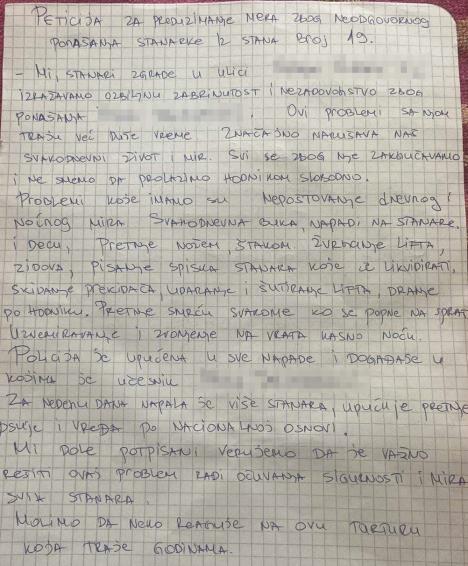 PETICIJA ZA PREDUZIMANJE MERA ZBOG NEODGOVORNOG
PONAŠANJA STANARKE IZ STANA BROJ 19.
- MI, STANARI ZGRADE U ULICI
IZRAŽAVAMO OZBILJNU ZABRINUTOST I NEZADOVOLJSTVO ZBOG
PONAŠANJA OVI PROBLEMI SA NJOM
TRAJU VEĆ DUŽE VREME ZNAČAJNO NARUŠAVA NAŠ
SVAKODNEVNI ŽIVOT I MIR. SVI SE ZBOG NJE ZAKLJUČAVAMO
I NE SMEMO DA PROLAZIMO HODNIKOM SLOBODNO.
PROBLEMI KOJE IMAMO SU NEPOSTOVANJE DNEVNOG I
NOĆNOG MIRA SVAKODNEVNA BUKA, NAPADI NA STANARE,
I DECU, PRETNJE NOŽEM, ŠTAKOM. ŽVRLJANJE LIFTA,
ZIDOVA, PISANJE SPISKA STANARA KOJE ĆE LIKVIDIRATI,
SKIDANJE PREKIDAČA, UDARANJE I ŠUTIRANJE LIFTA, DRANJE
PO HODNIKU. PRETNJE SMRĆU SVAKOME KO SE POPNE NA SPRAT
UZNEMIRAVANJE I ZVONJENJE NA VRATA KASNO NOĆU.
POLICIJA JE UPUĆENA U SVE NAPADE I DOGAĐAJE U
KOJIMA JE UČESNIK
ZA NEDELJU DANA NAPALA JE VIŠE STANARA, UPUĆUJE PRETNJE
PSUJE I VREĐA PO NACIONALNOJ OSNOVI.
MI DOLE POTPISANI VERUJEMO DA JE VAŽNO
REŠITI OVAJ PROBLEM RADI OČUVANJA SIGURNOSTI I MIRA
SVIH STANARA.
MOLIMO DA NEKO REAGUJE NA OVU TORTURU
KOJA TRAJE GODINAMA.